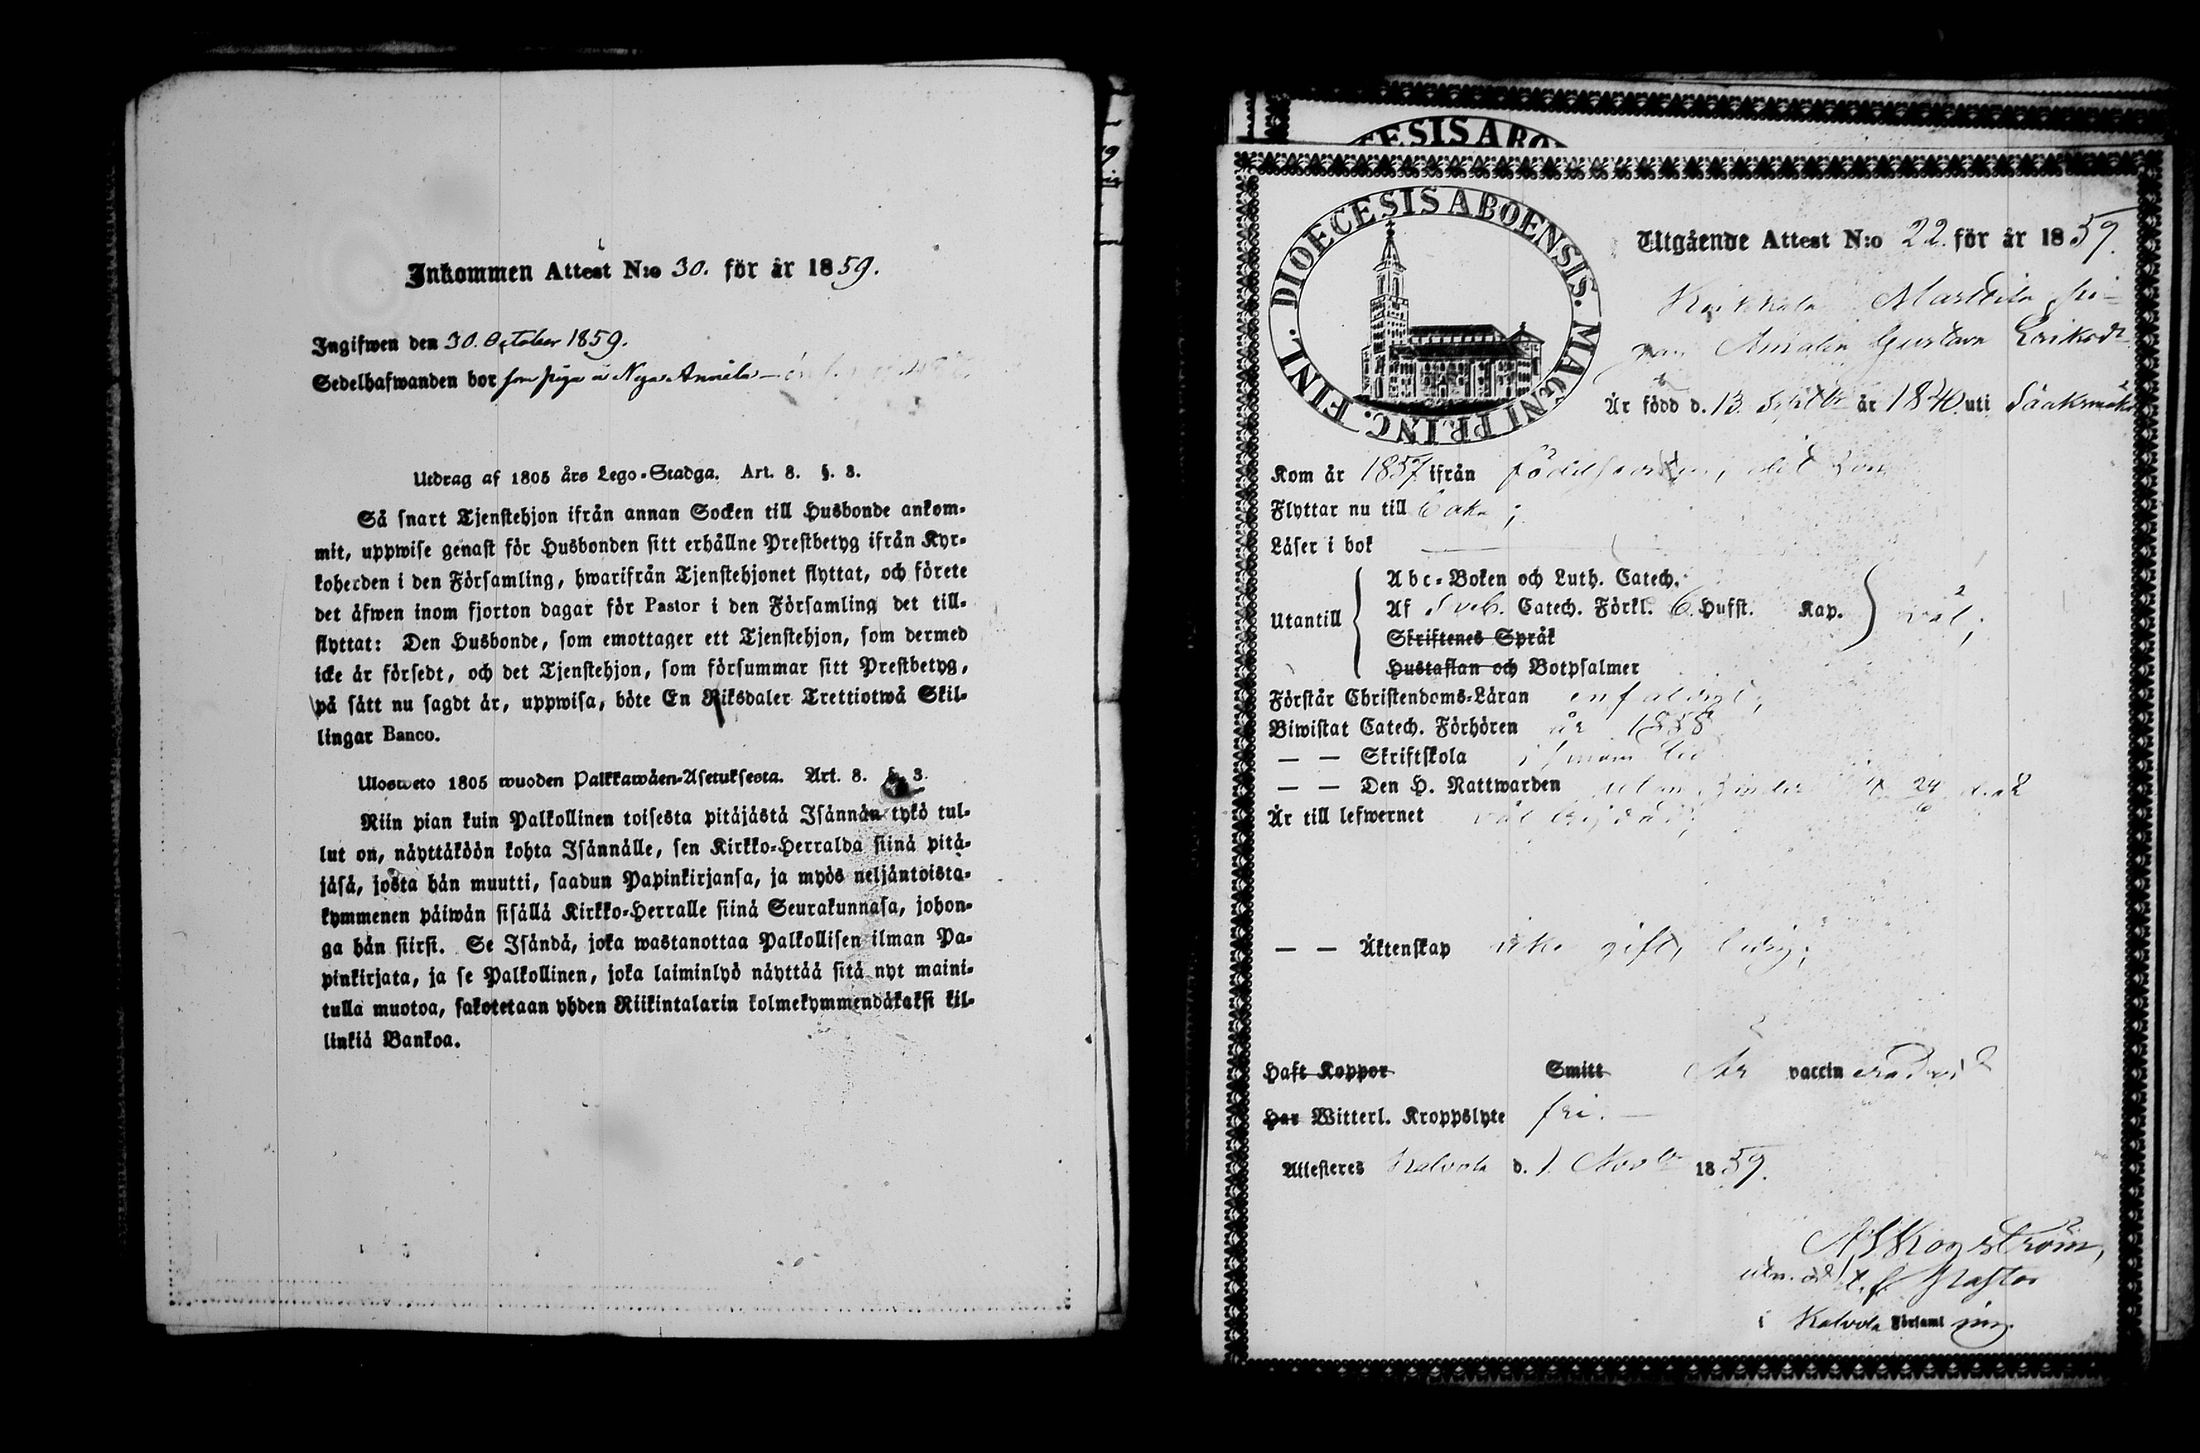 Inkommen Attest N:o 30. för år 1859.
Ingifwen den 30. October 1859.
Sedelhafwanden bor som piga å Nya Annila
Utdrag af 1805 års Lego-Stadga. Art. 8. §. 3.
Så snart Tjenstehjon ifrån annan Socken till Husbonde ankom-
mit, uppwise genast för Husbonden sitt erhållne Prestbetyg ifrån Kyr-
koherden i den Församling, hwarifrån Tjenstehjonet flyttat, och förete
det äfwen inom fjorton dagar för Pastor i den Församling det till-
flyttat: Den Husbonde, som emottager ett Tjenstehjon, som dermed
icke är försedt, och det Tjenstehjon, som försummar sitt Prestbetyg,
på sätt nu sagdt är, uppwisa, böte En Riksdaler Trettiotwå Skil-
lingar Banco.
Ulosweto 1805 wuoden Palkkawäen-Asetuksesta. Art. 8. §. 3.
Niin pian kuin Palkollinen toisesta pitäjästä Isännän tykö tul-
lut on, näyttäköön kohta Isännälle, sen Kirkko-Herralda siinä pitä-
jäsä, josta hän muutti, saadun Papinkirjansa, ja myös neljäntoista-
kymmenen päiwän sisällä Kirkko-Herralle siinä Seurakunnasa, johon-
ga hän siirsi. Se Isändä, joka wastanottaa Palkollisen ilman Pa-
pinkirjata, ja se Palkollinen, joka laiminlyö näyttää sitä nyt maini-
tulla muotoa, sakotetaan yhden Riikintalarin kolmekymmendäkaksi kil-
linkiä Bankoa.
ESIS ABO
FINL. DIOECESIS ABOENSIS. MAGNI PRINC.
Utgående Attest N:o 22. för år 1859.
Marttila pi-
gan Amalia Gustava Eriksdr
Är född d. 13. Septbr år 1840 uti Sääksmäki
Kom år 1857 ifrån födelseorten,
Flyttar nu till
Läser i bok
Utantill
Abc-Boken och Luth. Catech.
Af Sveb. Catech. Förkl. 6 Hufst. Kap. väl;
Skriftenes Språk
Hustaflan och Botpsalmer
Förstår Christendoms-Läran enfaldigt;
Biwistat Catech. Förhören år 1858
— — Skriftskola
— — Den H. Nattwarden utan hinder
Är till lefwernet
— — Äktenskap icke gift, ledig;
Haft Koppor Smitt Är vaccinerad
Har Witterl. Kroppslyte fri.
Attesteres Kalvola d. 1 Novbr 1859.
t. f. Pastor
i Kalvola Församling